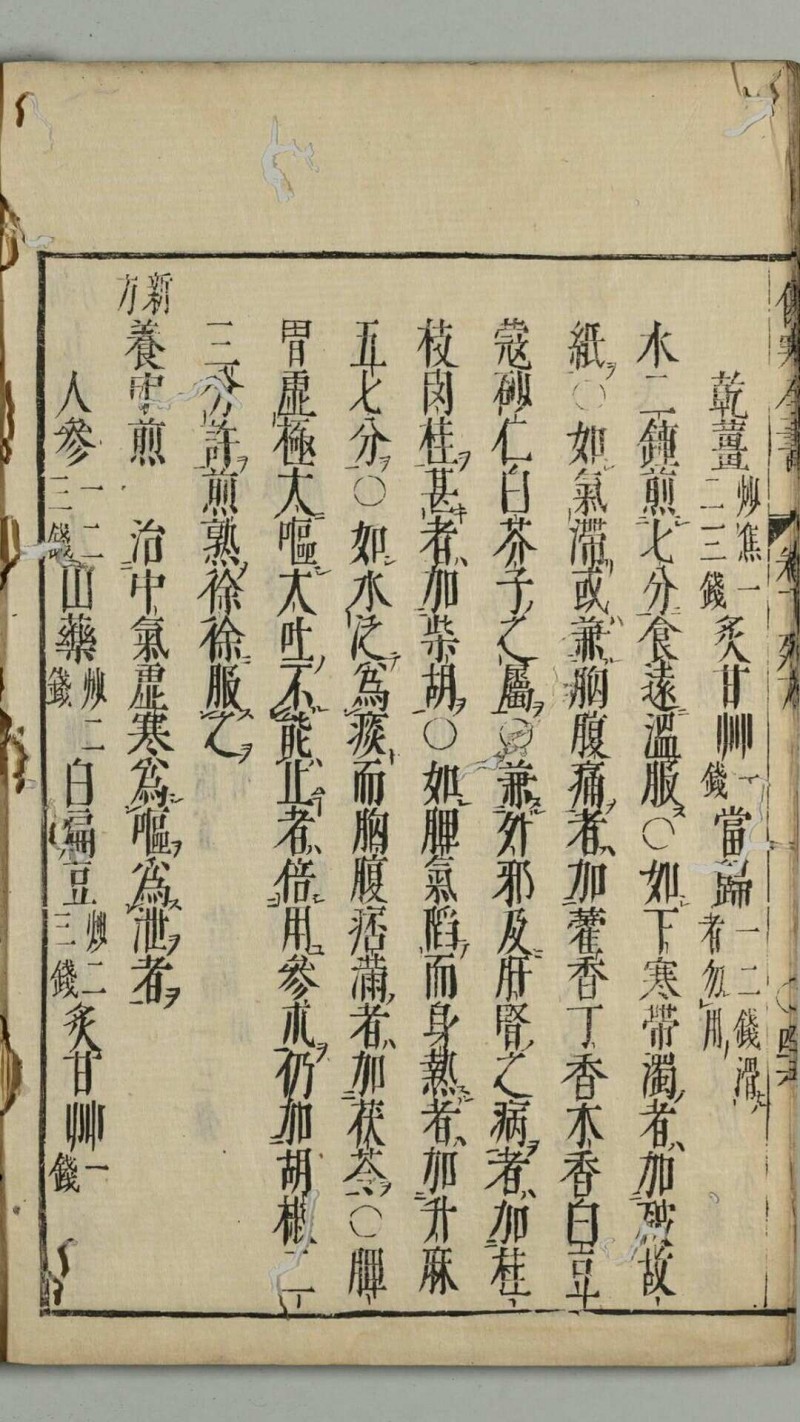 傷寒全書 卷下
乾薑炒焦一二三錢炙甘艸一錢當歸一二錢滑者勿用
水二鍾煎七分食遠溫服〇如下寒帶濁者加破故
紙〇如氣滯或兼胸腹痛者加藿香丁香木香白豆
蔻砂仁白芥子之屬〇兼外邪及肝腎之病者加桂
枝肉桂甚者加柴胡〇如脾氣陷而身熱者加升麻
五七分〇如水泛為痰而胸腹痞滿者加茯苓〇脾
胃虛極大嘔大吐不能止者倍用參朮仍加胡椒二
三分許煎熟徐徐服之
新方養中煎 治中氣虛寒為嘔為泄者
人參一二三錢山藥炒二錢白扁豆炒二三錢炙甘艸一錢